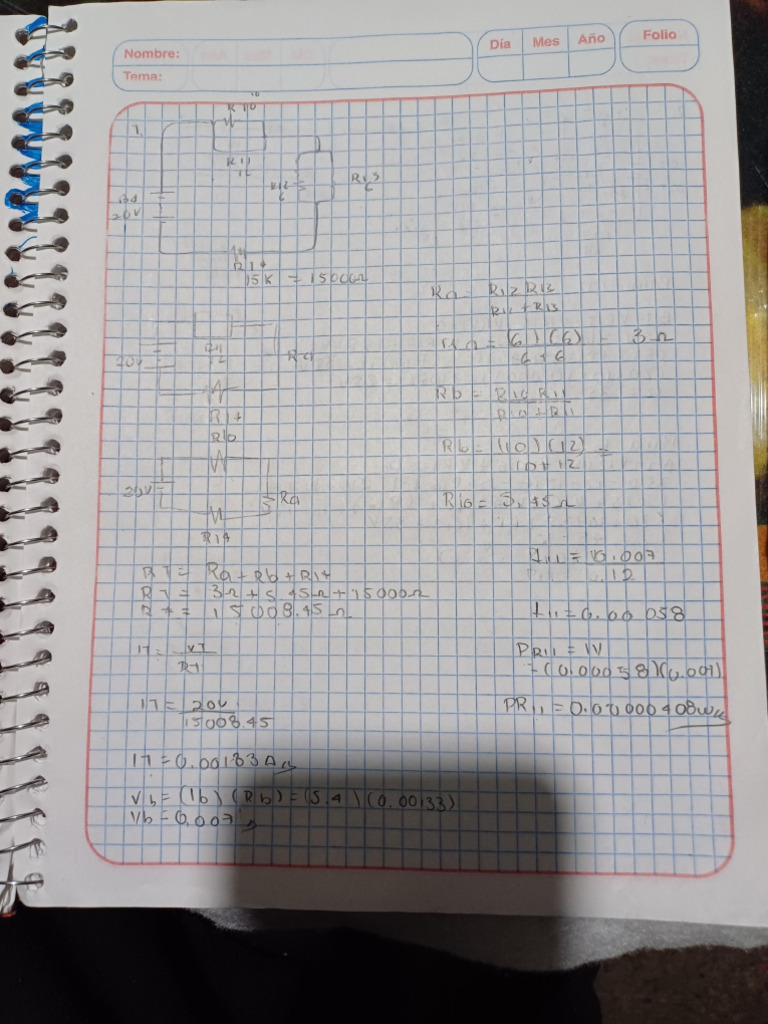 Nombre:
Tema:
Día Mes Año
Folio
1.
10
R10
R11
12
R12
6
R13
6
20V
R14
15K = 15000Ω
Ra = R12 R13
R12 + R13
Ra = (6)(6) = 3Ω
6+6
Rb = R10 R11
R10 + R11
Rb = (10)(12) =
10+12
R10 = 5.45Ω
20V
R11
12
Ra
R14
R10
20V
Ra
R14
RT = Ra + Rb + R14
RT = 3Ω + 5.45Ω + 15000Ω
RT = 15008.45Ω
IT = VT
RT
IT = 20V
15008.45
IT = 0.00133A
Vb = (Ib)(Rb) = (5.4)(0.00133)
Vb = 0.007
I11 = 0.007
12
I11 = 0.00058
PR11 = IV
= (0.00058)(0.007)
PR11 = 0.00000408W